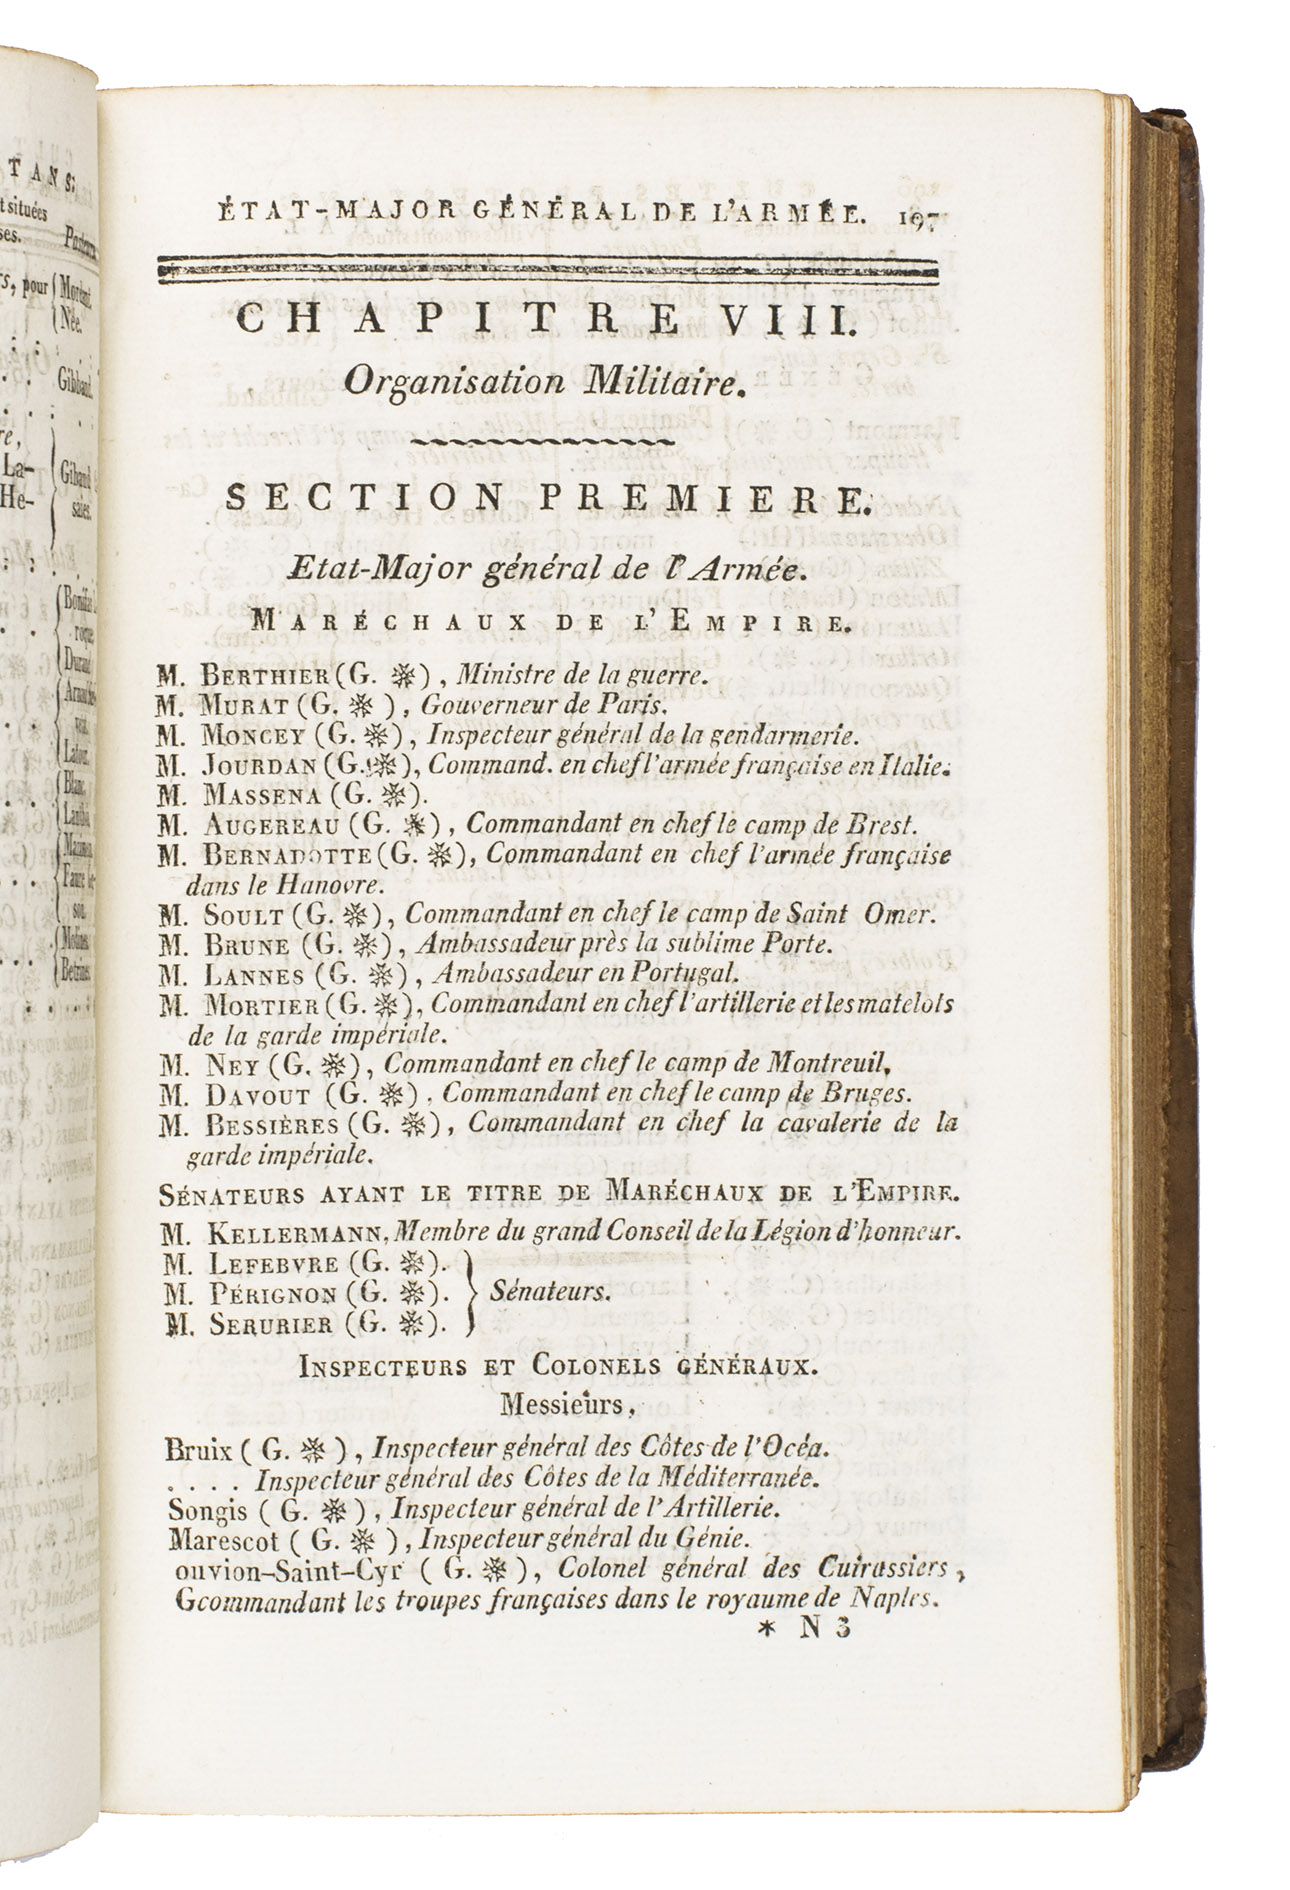 TANS.
t situées
ses.
Pasteurs
rs, pour
Née.
Gibbaud.
re,
La-
He-
Gibaud
Durand
Latour.
Blanc,
Molines,
ÉTAT-MAJOR GÉNÉRAL DE L'ARMÉE. 197
CHAPITRE VIII.
Organisation Militaire.
SECTION PREMIERE.
Etat-Major général de l'Armée.
MARÉCHAUX DE L'EMPIRE.
M. BERTHIER (G. ❋), Ministre de la guerre.
M. MURAT (G. ❋ ), Gouverneur de Paris.
M. MONCEY (G. ❋), Inspecteur général de la gendarmerie.
M. JOURDAN (G. ❋), Command. en chef l'armée française en Italie.
M. MASSENA (G. ❋).
M. AUGEREAU (G. ❋), Commandant en chef le camp de Brest.
M. BERNADOTTE (G. ❋), Commandant en chef l'armée française
dans le Hanovre.
M. SOULT (G. ❋), Commandant en chef le camp de Saint Omer.
M. BRUNE (G. ❋), Ambassadeur près la sublime Porte.
M. LANNES (G. ❋), Ambassadeur en Portugal.
M. MORTIER (G. ❋), Commandant en chef l'artillerie et les matelots
de la garde impériale.
M. NEY (G. ❋), Commandant en chef le camp de Montreuil.
M. DAVOUT (G. ❋), Commandant en chef le camp de Bruges.
M. BESSIÈRES (G. ❋), Commandant en chef la cavalerie de la
garde impériale.
SÉNATEURS AYANT LE TITRE DE MARÉCHAUX DE L'EMPIRE.
M. KELLERMANN, Membre du grand Conseil de la Légion d'honneur.
M. LEFEBVRE (G. ❋).
M. PÉRIGNON (G. ❋). } Sénateurs.
M. SERURIER (G. ❋).
INSPECTEURS ET COLONELS GÉNÉRAUX.
Messieurs,
Bruix ( G. ❋ ), Inspecteur général des Côtes de l'Océa.
. . . . Inspecteur général des Côtes de la Méditerranée.
Songis ( G. ❋ ), Inspecteur général de l'Artillerie.
Marescot ( G. ❋ ), Inspecteur général du Génie.
ouvion-Saint-Cyr ( G. ❋ ), Colonel général des Cuirassiers,
Gcommandant les troupes françaises dans le royaume de Naples.
* N 3